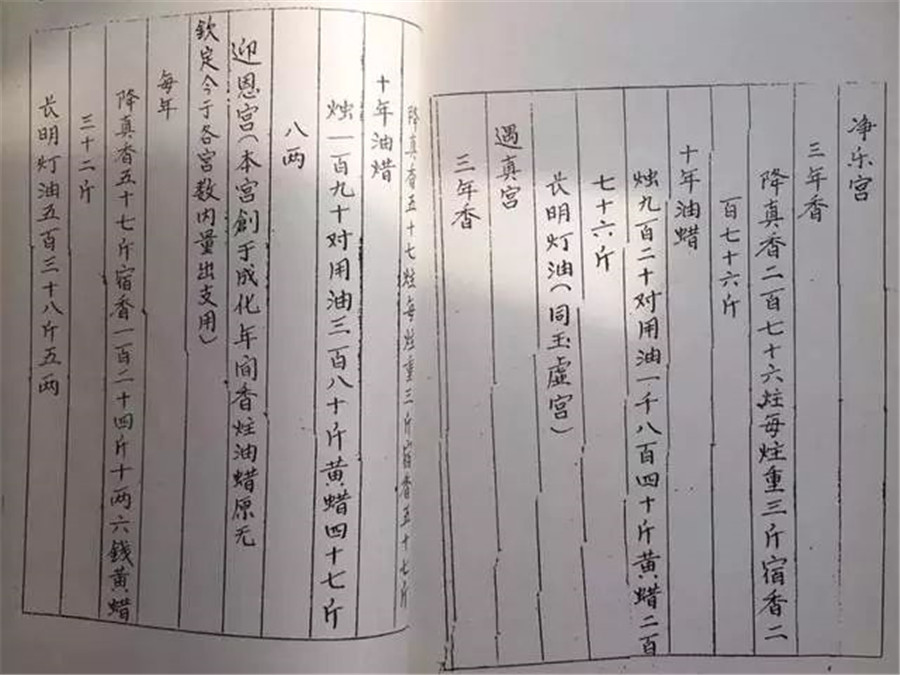 净乐宫
三年香
降真香二百七十六炷每炷重三斤宿香二
百七十六斤
十年油蜡
烛九百二十对用油一千八百四十斤黄蜡二百
七十六斤
长明灯油（同玉虚宫）
遇真宫
三年香
降真香五十七炷每炷重三斤宿香五十七斤
十年油蜡
烛一百九十对用油三百八十斤黄蜡四十七斤
八两
迎恩宫（本宫創于成化年间香炷油蜡原无
钦定今于各宫数内量出支用）
每年
降真香五十七斤宿香一百二十四斤十两六錢黄蜡
三十二斤
长明灯油五百三十八斤五两